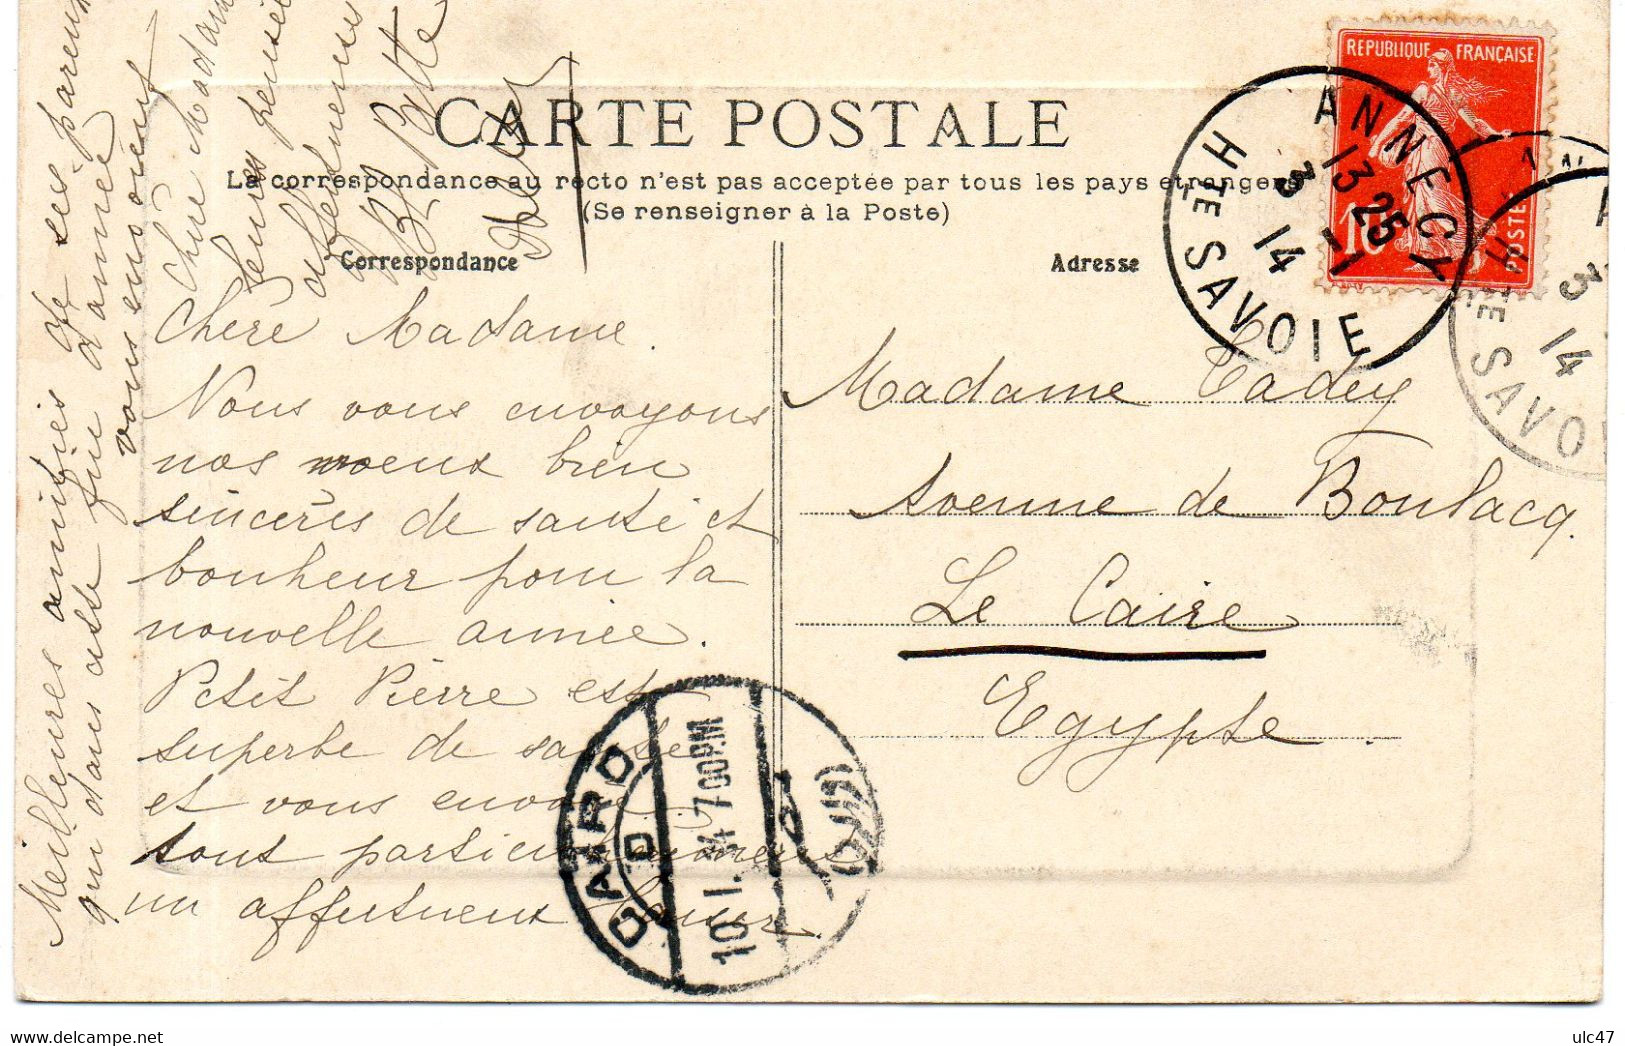 CARTE POSTALE
La correspondance au recto n'est pas acceptée par tous les pays etrangers
(Se renseigner à la Poste)
Correspondance
Adresse
REPUBLIQUE FRANÇAISE
10
POSTES
ANNECY
13 25
3 - 1
14
HTE SAVOIE
3
14
TE SAVOI
Chère Madame.
Nous vous envoyons
nos voeux bien
sincères de santé et
bonheur pour la
nouvelle année.
Petit Pierre est
superbe de santé
et vous envoie
tout particulièrement
un affectueux baiser.
Meilleures amitiés de ses parents
qui dans cette fin d'année
vous envoient
Chère Madame
affectueuses
Madame Tadey
Avenue de Boulacq.
Le Caire
Egypte.
CAIRO
D
10.I.14 7 00P.M
delcampe.net
ulc47